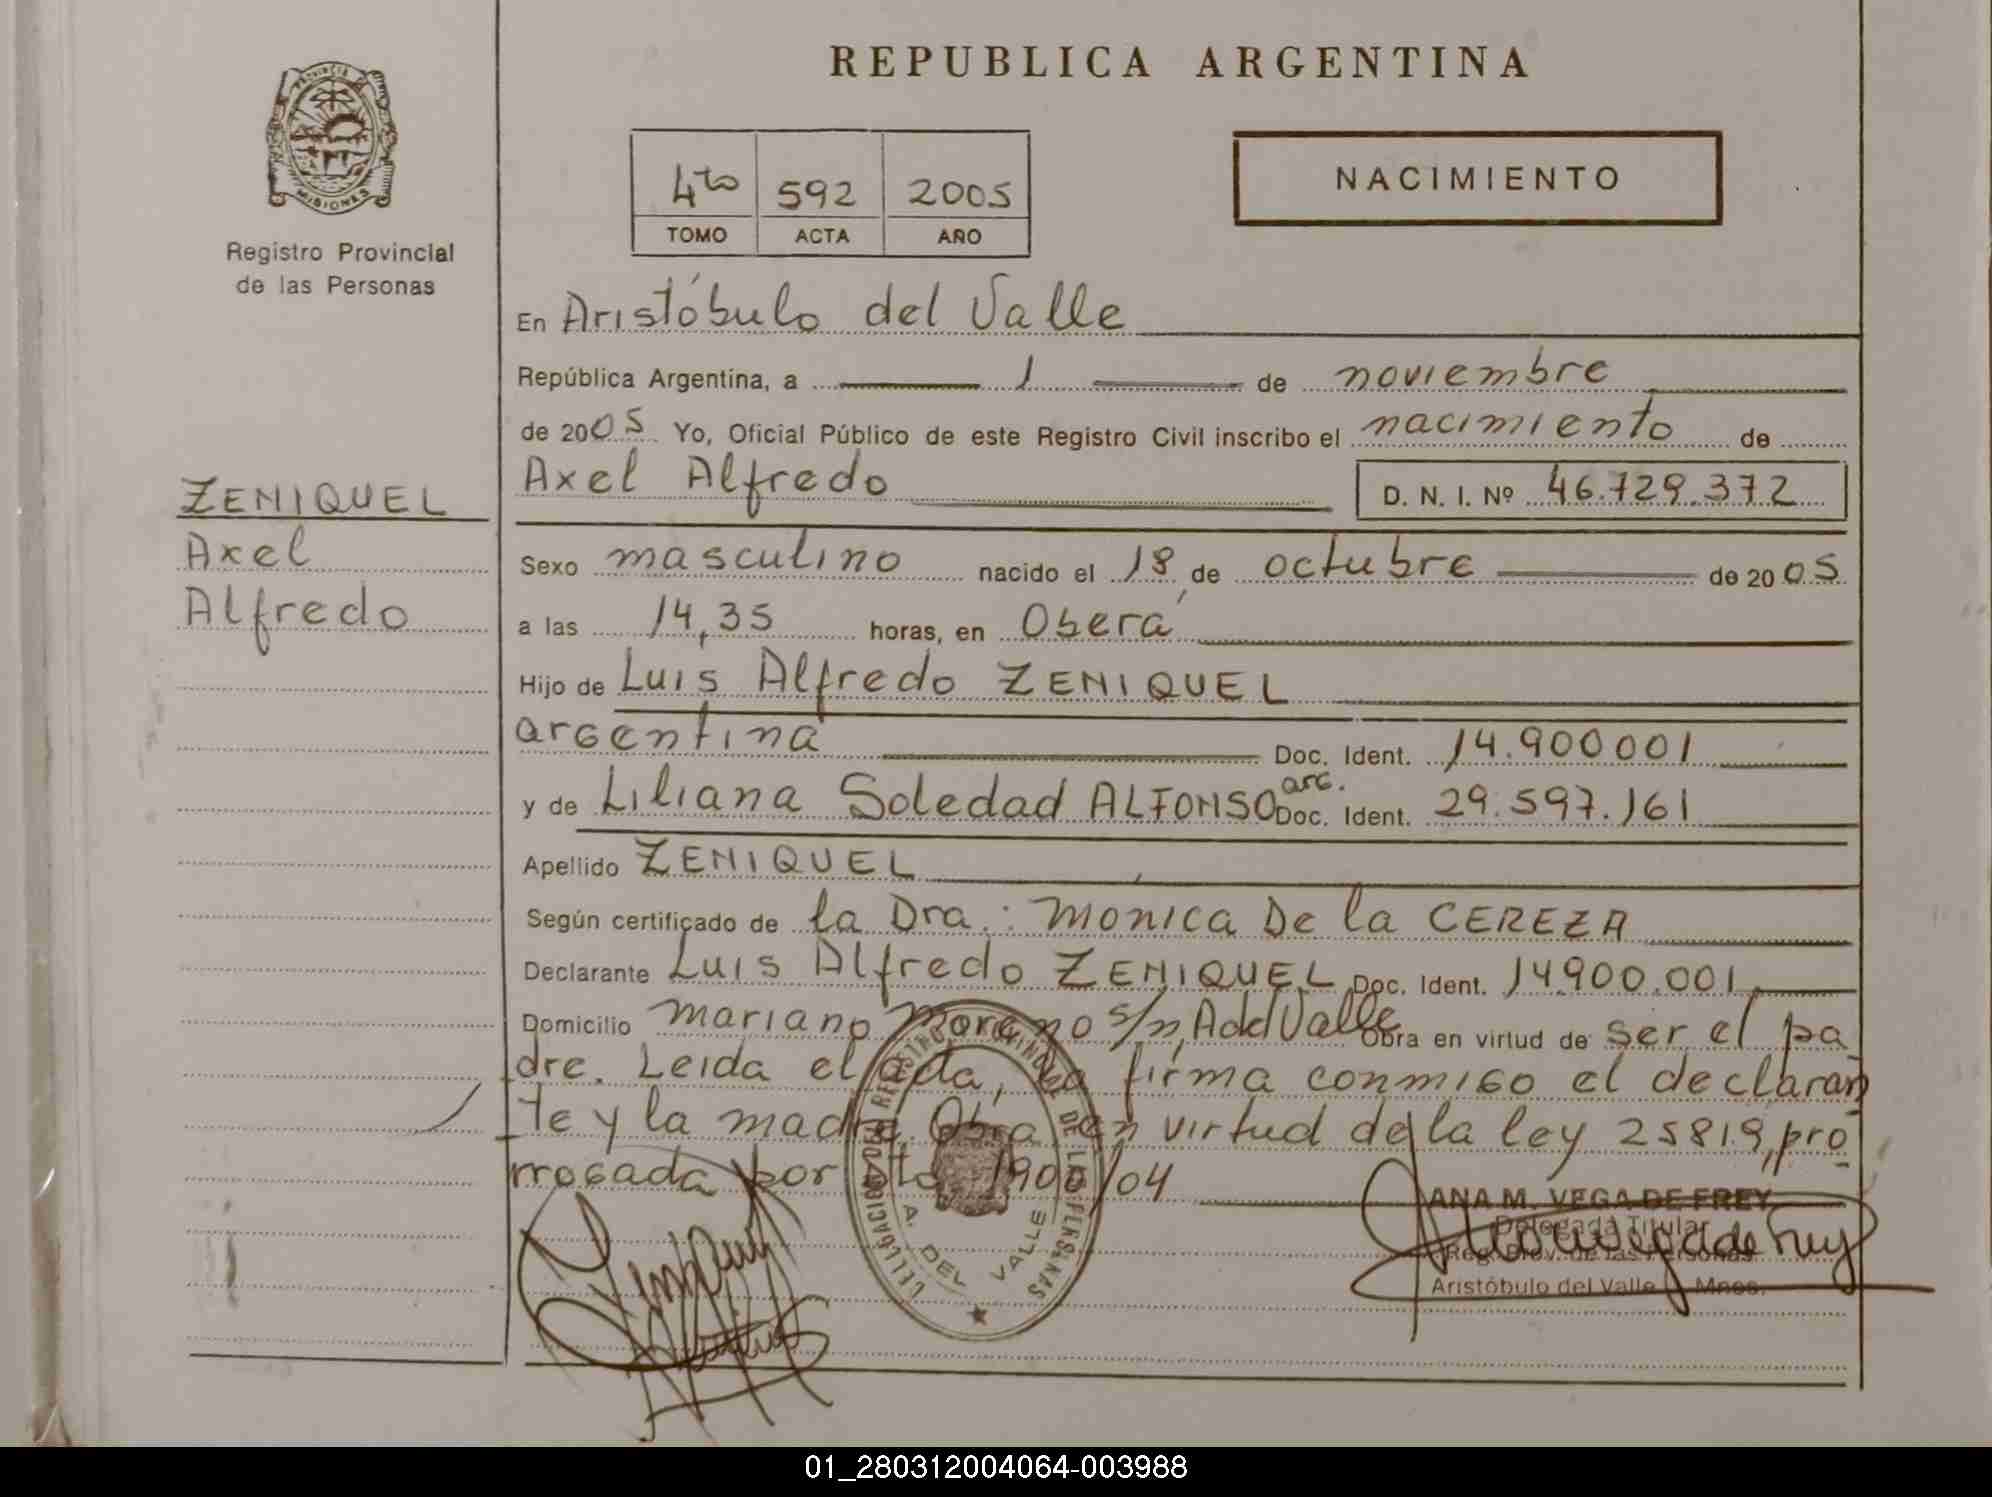 REPUBLICA ARGENTINA
PROVINCIA
MISIONES
Registro Provincial
de las Personas
4to 592 2005
TOMO ACTA AÑO
NACIMIENTO
En Aristóbulo del Valle
República Argentina, a 1 de noviembre
de 2005 Yo, Oficial Público de este Registro Civil inscribo el nacimiento de
Axel Alfredo D. N. I. Nº 46.729.372
ZENIQUEL
Axel
Alfredo
Sexo masculino nacido el 18 de octubre de 2005
a las 14,35 horas, en Oberá
Hijo de Luis Alfredo ZENIQUEL
argentina Doc. Ident. 14.900001
y de Liliana Soledad ALFONSO arg. Doc. Ident. 29.597.161
Apellido ZENIQUEL
Según certificado de la Dra.: Monica De la CEREZA
Declarante Luis Alfredo ZENIQUEL Doc. Ident. 14.900.001
Domicilio Mariano Moreno s/n, A del Valle Obra en virtud de ser el pa
dre. Leida el acta, la firma conmigo el declaran
te y la madre. Obra en virtud de la ley 25819, pro
rrogada por dto 1900/04
DELEGACION REGISTRO PROVINCIAL DE LAS PERSONAS
A. DEL VALLE
ANA M. VEGA DE FREY
Delegada Titular
Reg. Prov. de las Personas
Aristóbulo del Valle Mnes.
01_280312004064-003988